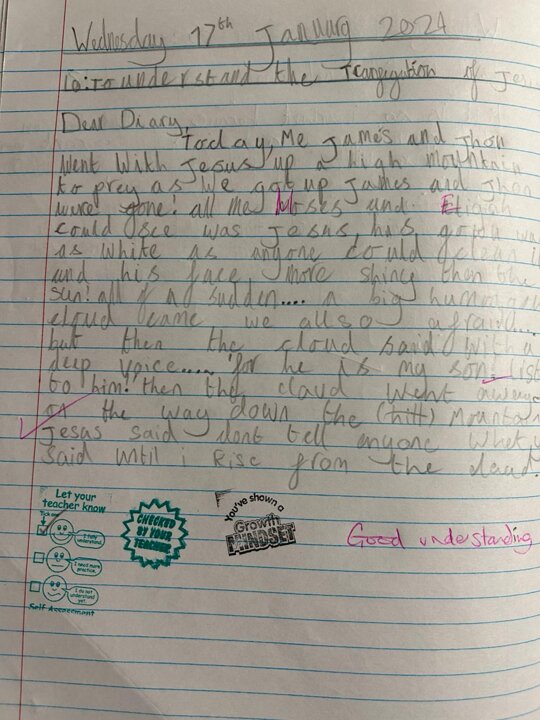 Wednesday 17th January 2024
Lo: To understand the Trangegation of Jesu
Dear Diary,
Today, Me James and Jhon
went with Jesus up a high mountain
to prey as we got up James and Jhon
were gone! all me Moses and Eligah
could see was Jesus, his
as white as anyone could clean i
and his face more shiny then the
sun! all of a sudden.... a big
cloud came we allso afraid....
but then the cloud said with a
deep voice..... 'for he is my son, list
to him.' then the claud went
on the way down the (hill) Mountain
Jesus said dont tell anyone what
said until i Rise from the dead.
Let your
teacher know
Tick one
I fully understand.
I need more practice.
I do not understand yet.
Self Assessment
CHECKED
BY YOUR
TEACHER
You've shown a
Growth
MINDSET
Good understanding